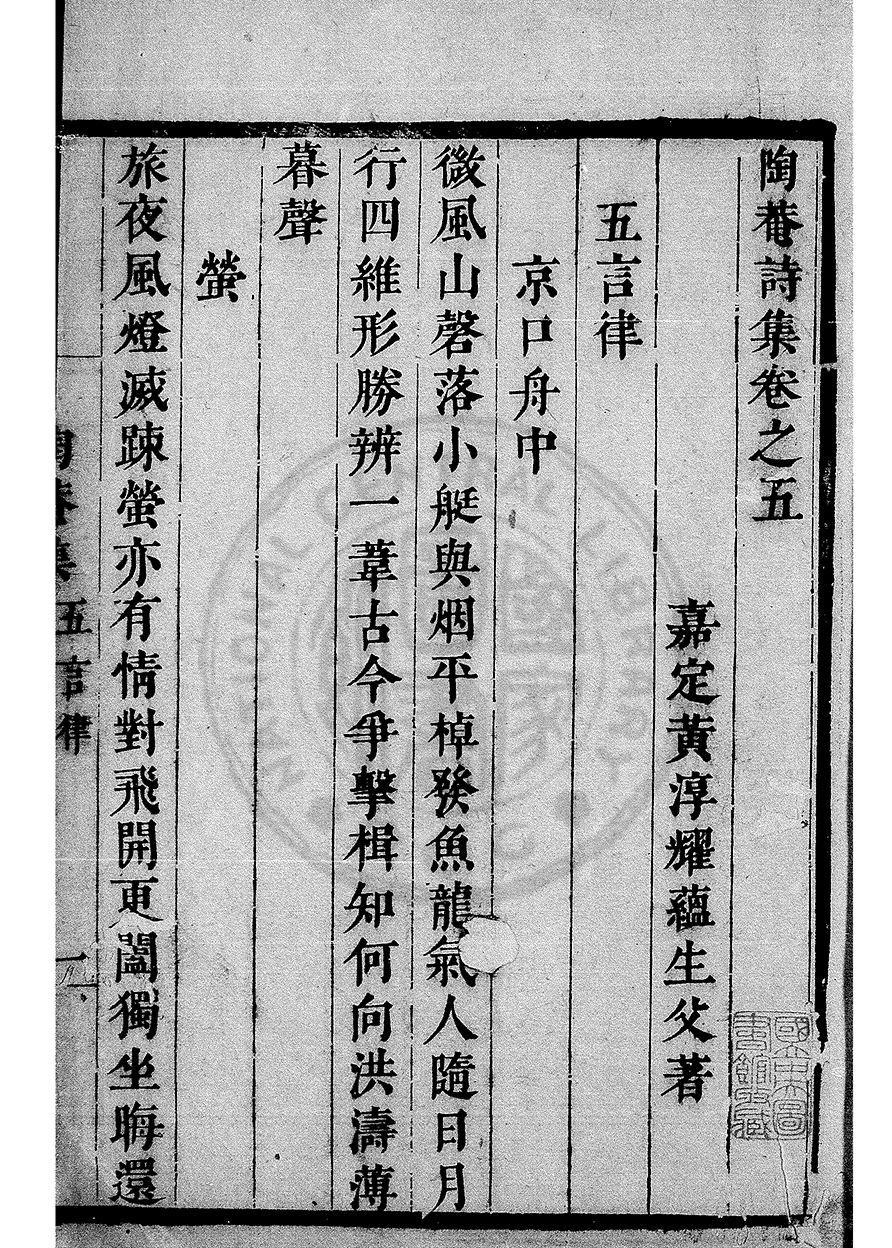 陶菴詩集卷之五
嘉定黃淳耀蘊生父著
五言律
京口舟中
微風山磬落小艇與烟平棹發魚龍氣人隨日月
行四維形勝辨一葦古今爭擊楫知何向洪濤薄
暮聲
螢
旅夜風燈滅踈螢亦有情對飛開更闔獨坐晦還
陶菴集
五言律
一
國立中央圖書館收藏
NATIONAL CENTRAL LIBRARY
國家